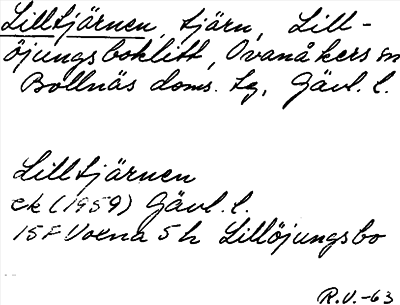 Lilltjärnen, tjärn, Lill-
öjungsboklitt, Ovanåkers sn
Bollnäs doms. tg, Gävl. l.
Lilltjärnen
ek (1959) Gävl. l.
15F Voxna 5h Lillöjungsbo
R.V.-63